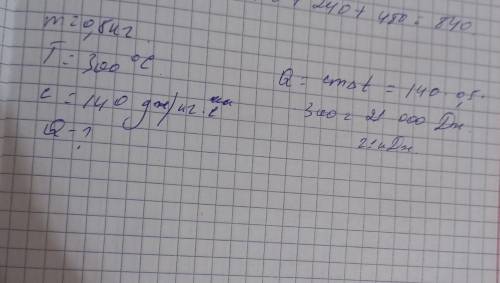 + 240 + 480 = 840
m = 0,5 кг
T = 300 °C
c = 140 дж/кг
Q - ?
Q = cm∆t = 140 · 0,5 ·
300 = 21 000 Дж
21 кДж